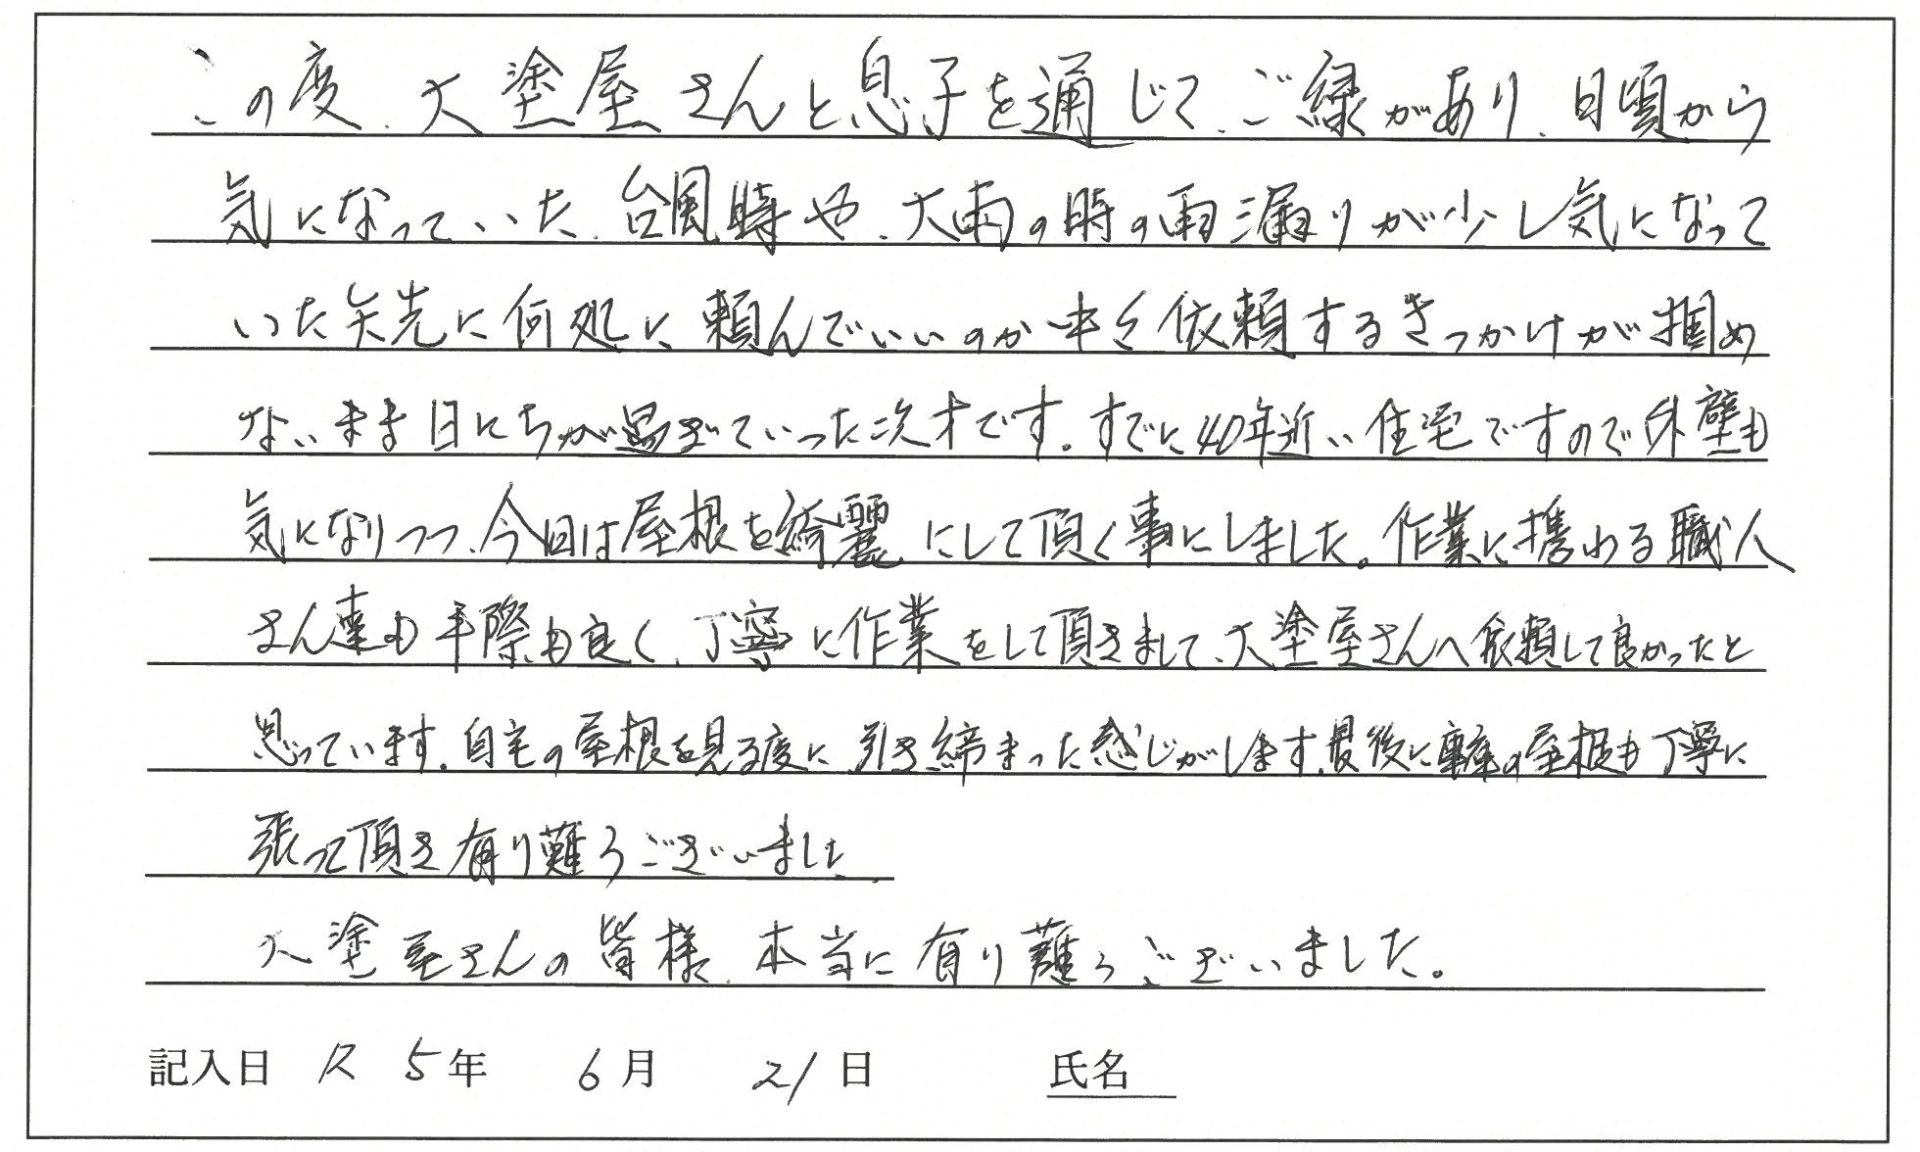 この度、大塗屋さんと息子を通じて、ご縁があり、日頃から
気になっていた、台風時や、大雨の時の雨漏りが少し気になって
いた矢先に何処に頼んでいいのか中々依頼するきっかけが掴め
ないまま日にちが過ぎていった次才です。すでに40年近い住宅ですので外壁も
気になりつつ、今回は屋根を綺麗にして頂く事にしました。作業に携わる職人
さん達も手際も良く、丁寧に作業をして頂きまして、大塗屋さんへ依頼して良かったと
思っています。自宅の屋根を見る度に、引き締まった感じがします。最後に車庫の屋根も丁寧に
張って頂き有り難うございました
大塗屋さんの皆様、本当に有り難うございました。
記入日 R 5年 6月 21日 氏名